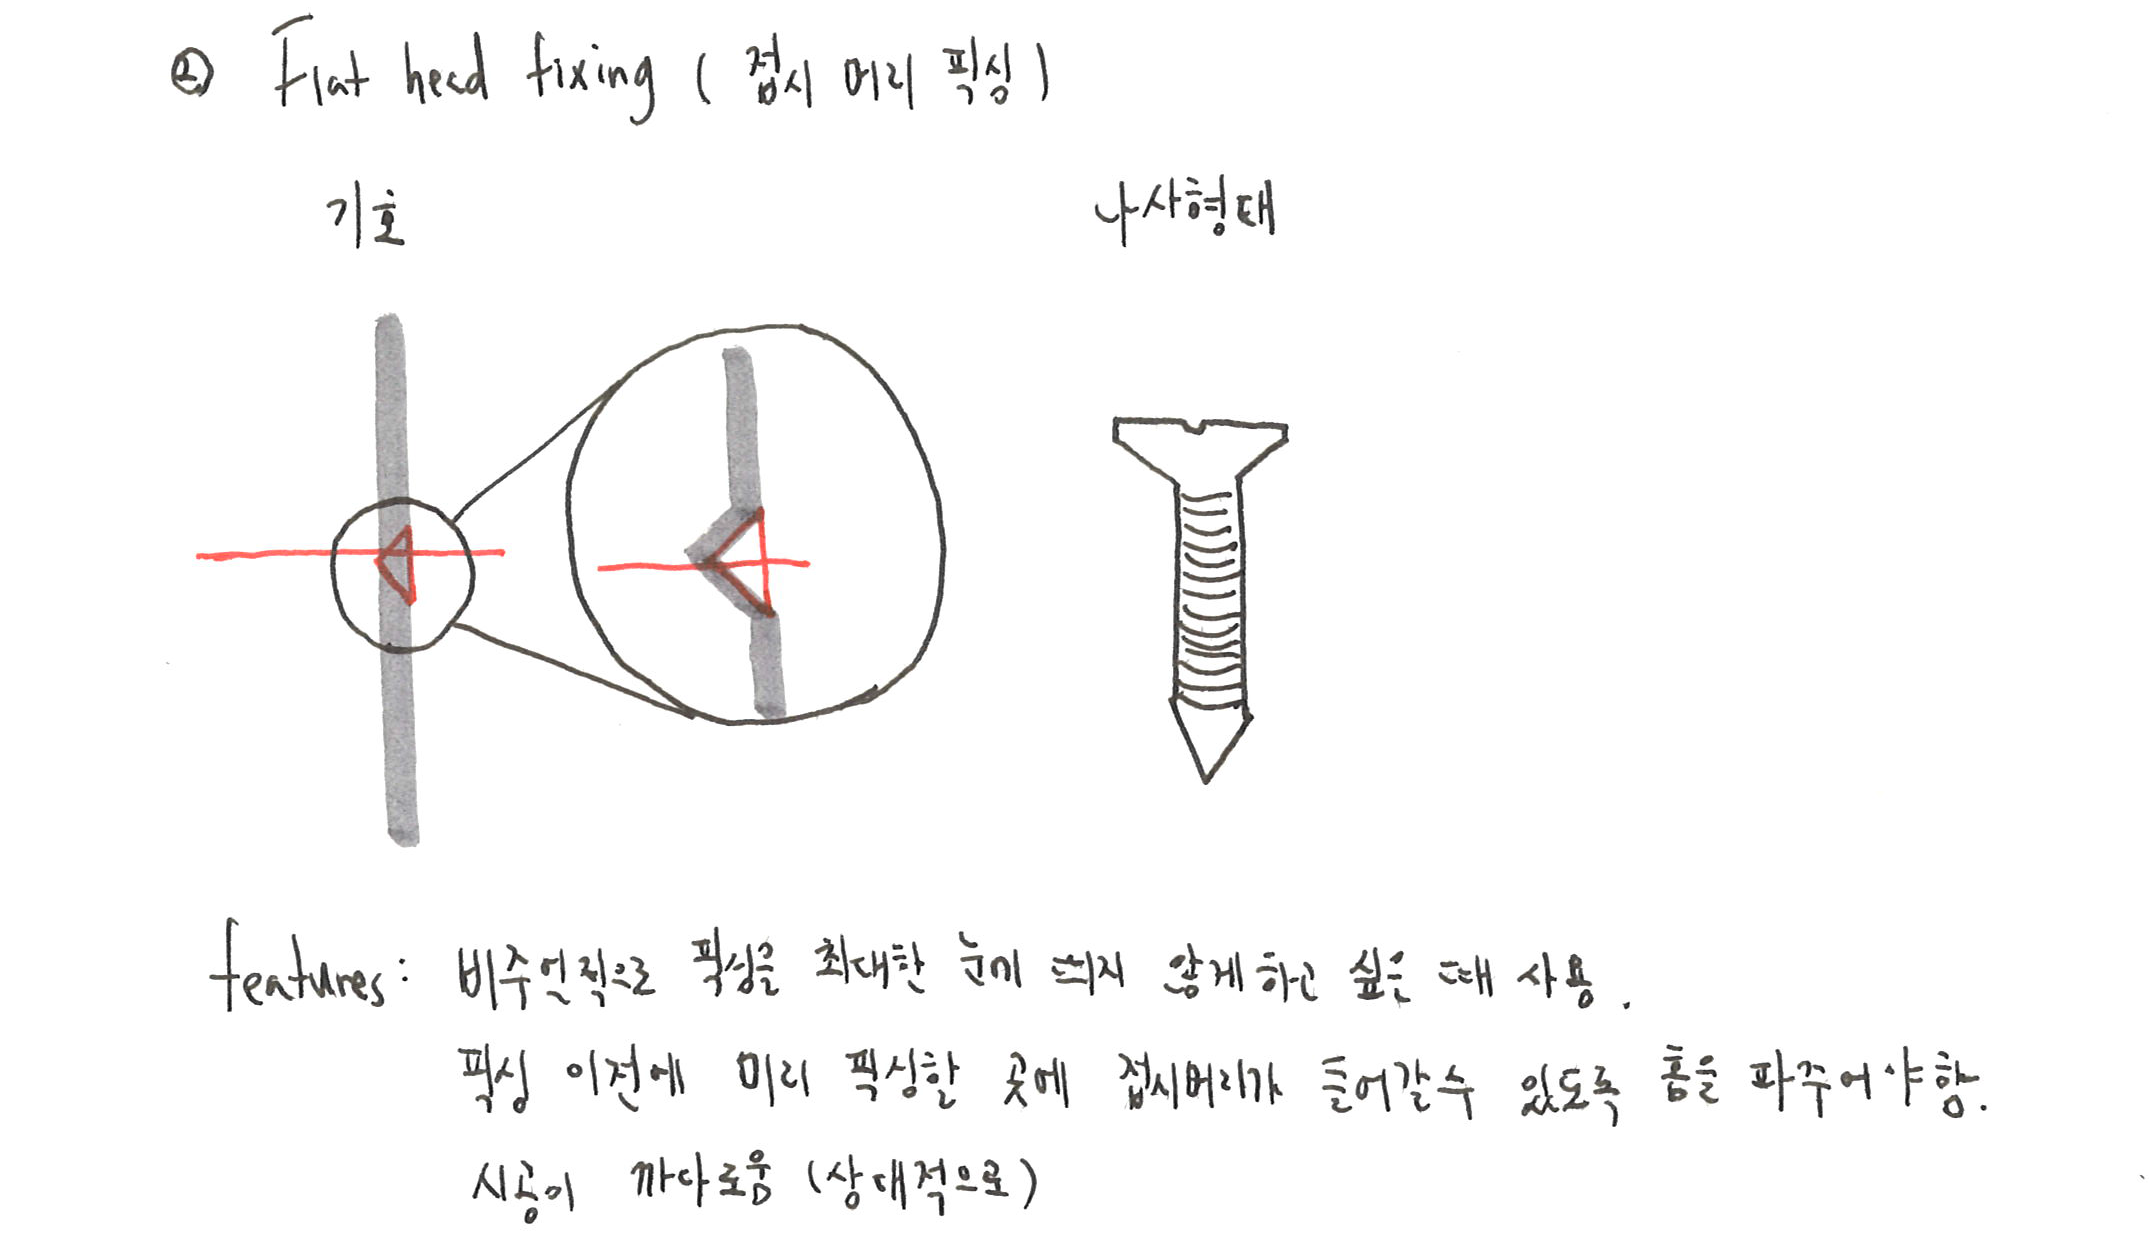 ② Flat head fixing ( 접시 머리 픽싱 )
기호
나사형태
features : 비주얼적으로 픽싱을 최대한 눈에 띄지 않게하고 싶은 때 사용.
픽싱 이전에 미리 픽싱할 곳에 접시머리가 들어갈수 있도록 홈을 파주어야함.
시공이 까다로움 (상대적으로)